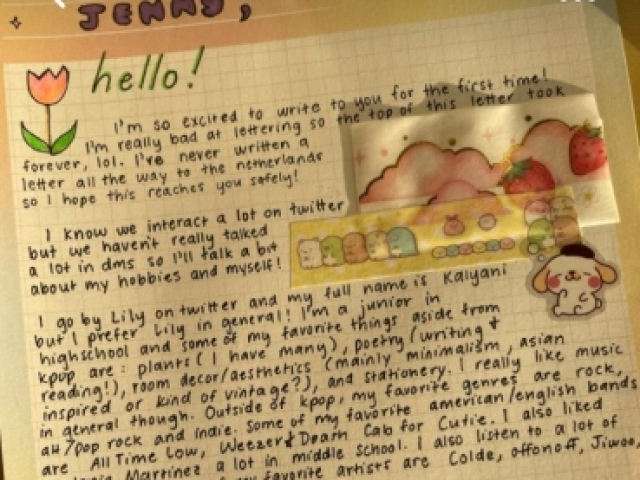 JENNY,
hello!
I'm so excited to write to you for the first time!
I'm really bad at lettering so the top of this letter took
forever, lol. I've never written a
letter all the way to the netherlands
so I hope this reaches you safely!
I know we interact a lot on twitter
but we haven't really talked
a lot in dms so I'll talk a bit
about my hobbies and myself!
I go by Lily on twitter and my full name is Kalyani
but I prefer Lily in general! I'm a junior in
highschool and some of my favorite things aside from
kpop are: plants (I have many), poetry (writing &
reading!), room decor/aesthetics (mainly minimalism, asian
inspired or kind of vintage?), and stationery. I really like music
in general though. Outside of kpop, my favorite genres are rock,
alt/pop rock and indie. Some of my favorite american/english bands
are All Time Low, Weezer & Death Cab for Cutie. I also liked
Martinez a lot in middle school. I also listen to a lot of
favorite artists are Colde, offonoff, Jiwoo,